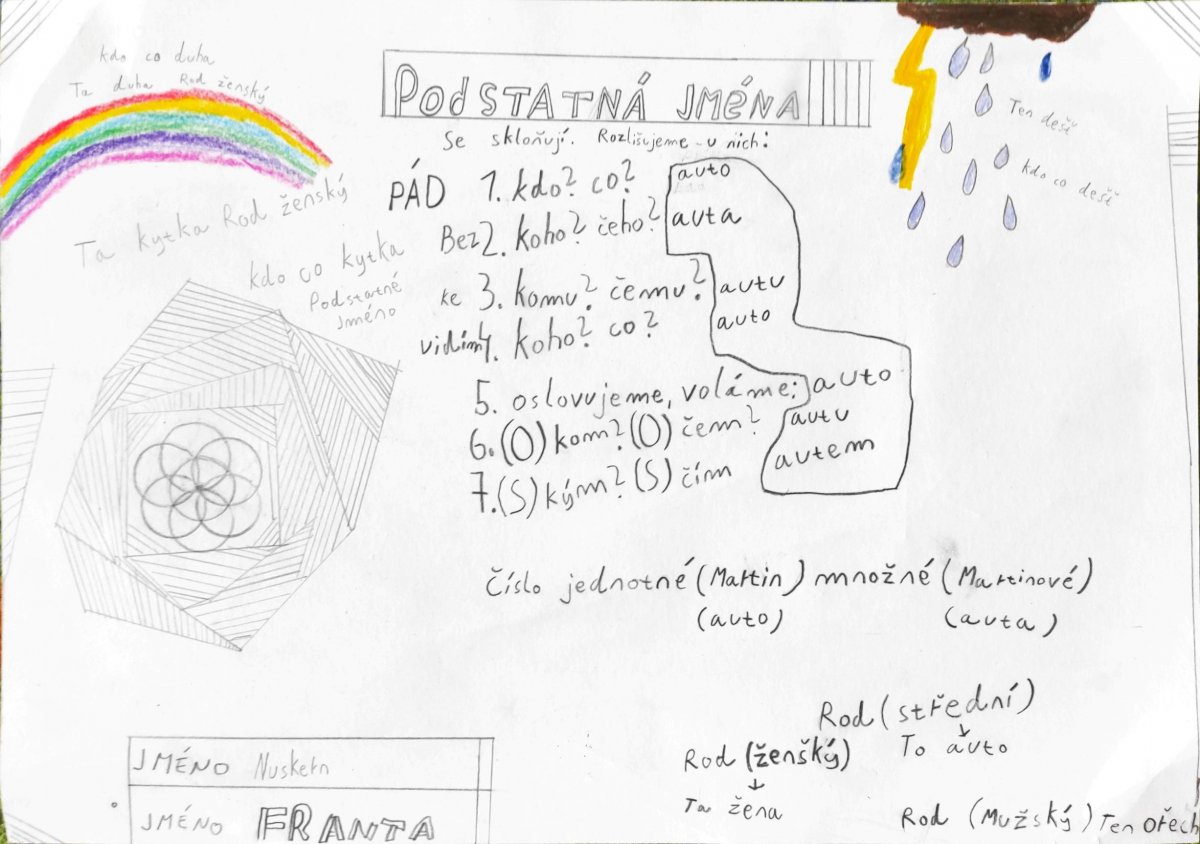 kdo co duha
Ta duha Rod ženský
PODSTATNÁ JMÉNA
Se skloňují. Rozlišujeme u nich:
Ten dešť
kdo co dešť
Ta kytka Rod ženský
kdo co kytka
Podstatné
Jméno
PÁD 1. kdo? co? auto
Bez 2. koho? čeho? auta
ke 3. komu? čemu? autu
vidím 4. koho? co? auto
5. oslovujeme, voláme: auto
6. (O) kom? (O) čem? autu
7. (S) kým? (S) čím autem
Číslo jednotné (Martin) množné (Martinové)
(auto) (auta)
Rod (střední)
To auto
Rod (ženšký)
Ta žena
Rod (Mužský) Ten ořech
JMÉNO
JMÉNO FRANTA